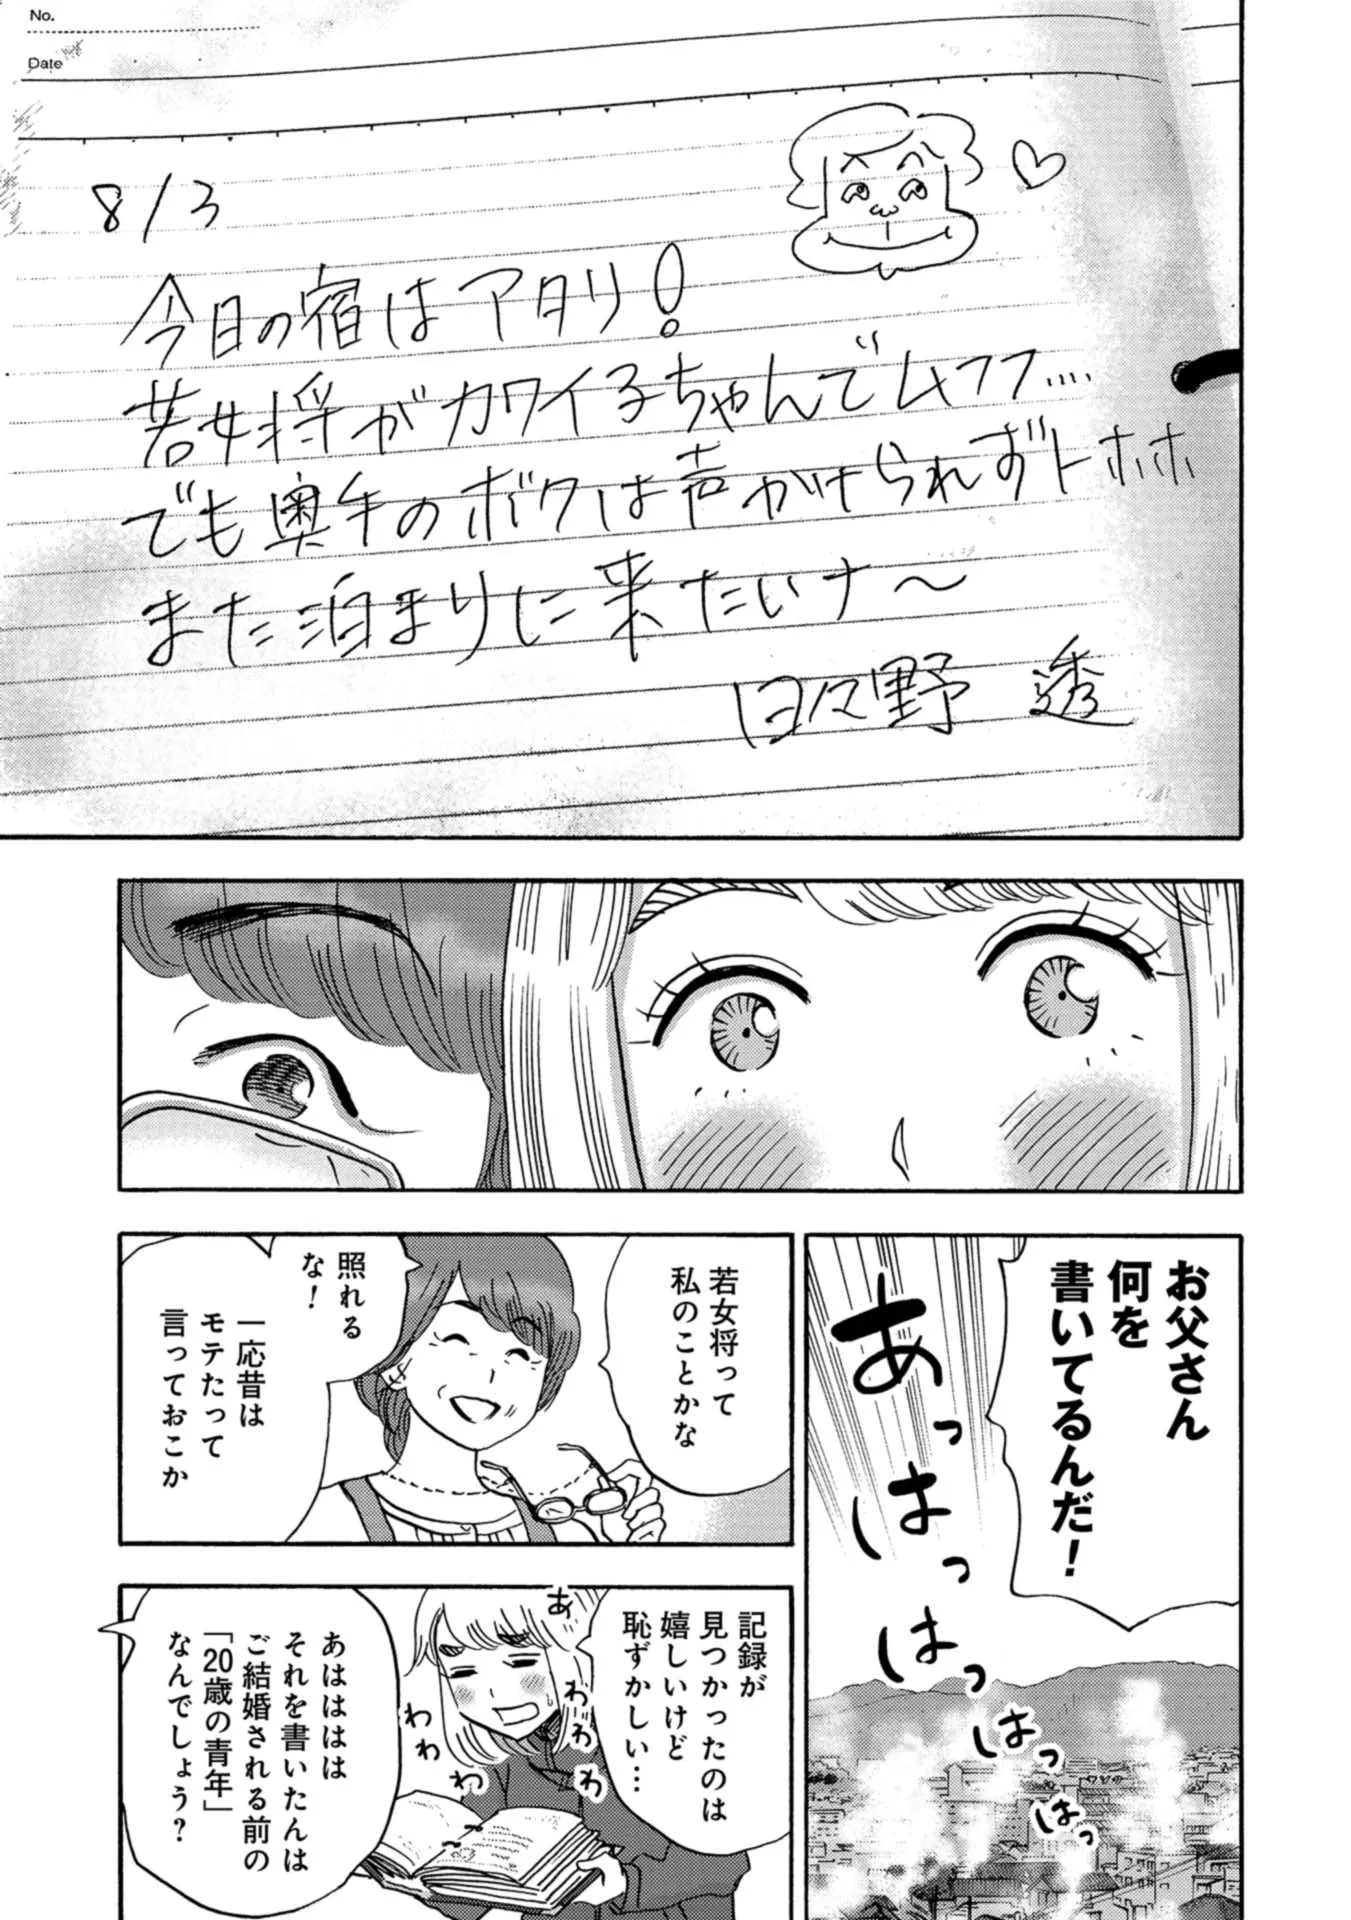 No.
Date
8/3
今日の宿はアタリ!
若女将がカワイ子ちゃんでムフフ....
でも奥手のボクは声かけられずトホホ
また泊まりに来たいナ〜
日々野 透
お父さん
何を
書いてるんだ!
あっはっはっはっはっ
若女将って
私のことかな
照れる
な!
一応昔は
モテたって
言っておこか
記録が
見つかったのは
嬉しいけど
恥ずかしい…
あ
わわわ
わわ
わ
あはははは
それを書いたんは
ご結婚される前の
「20歳の青年」
なんでしょう?